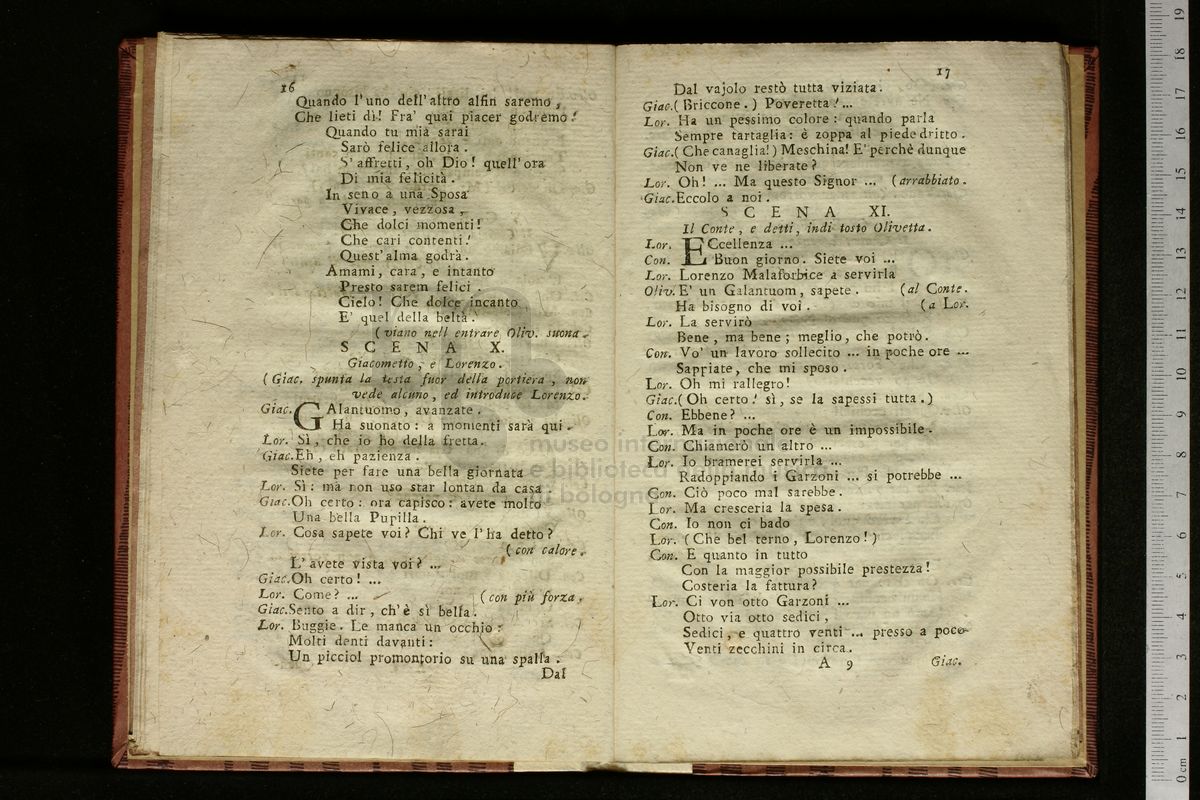 16
Quando l'uno dell'altro alfin saremo,
Che lieti dì! Fra' quai piacer godremo!
Quando tu mia sarai
Sarò felice allora.
S'affretti, oh Dio! quell'ora
Di mia felicità.
In seno a una Sposa
Vivace, vezzosa,
Che dolci momenti!
Che cari contenti!
Quest'alma godrà.
Amami, cara, e intanto
Presto sarem felici.
Cielo! Che dolce incanto
E' quel della beltà.
(viano nell entrare Oliv. suona.
SCENA X.
Giacometto, e Lorenzo.
(Giac. spunta la testa fuor della portiera, non
vede alcuno, ed introduce Lorenzo.
Giac. GAlantuomo, avanzate.
Ha suonato: a momenti sarà qui.
Lor. Sì, che io ho della fretta.
Giac. Eh, eh pazienza.
Siete per fare una bella giornata
Lor. Sì: ma non uso star lontan da casa.
Giac. Oh certo: ora capisco: avete molto
Una bella Pupilla.
Lor. Cosa sapete voi? Chi ve l'ha detto?
(con calore.
L'avete vista voi? ...
Giac. Oh certo! ...
Lor. Come? ... (con più forza.
Giac. Sento a dir, ch'è sì bella.
Lor. Buggie. Le manca un occhio:
Molti denti davanti:
Un picciol promontorio su una spalla.
Dal
17
Dal vajolo restò tutta viziata.
Giac. (Briccone.) Poveretta! ...
Lor. Ha un pessimo colore: quando parla
Sempre tartaglia: è zoppa al piede dritto.
Giac. (Che canaglia!) Meschina! E' perchè dunque
Non ve ne liberate?
Lor. Oh! ... Ma questo Signor ... (arrabbiato.
Giac. Eccolo a noi.
SCENA XI.
Il Conte, e detti, indi tosto Olivetta.
Lor. ECcellenza ...
Con. Buon giorno. Siete voi ...
Lor. Lorenzo Malaforbice a servirla
Oliv. E' un Galantuom, sapete. (al Conte.
Ha bisogno di voi. (a Lor.
Lor. La servirò
Bene, ma bene; meglio, che potrò.
Con. Vo' un lavoro sollecito ... in poche ore ...
Sappiate, che mi sposo.
Lor. Oh mi rallegro!
Giac. (Oh certo! sì, se la sapessi tutta.)
Con. Ebbene? ...
Lor. Ma in poche ore è un impossibile.
Con. Chiamerò un altro ...
Lor. Io bramerei servirla ...
Radoppiando i Garzoni ... si potrebbe ...
Con. Ciò poco mal sarebbe.
Lor. Ma cresceria la spesa.
Con. Io non ci bado
Lor. (Che bel terno, Lorenzo!)
Con. E quanto in tutto
Con la maggior possibile prestezza!
Costeria la fattura?
Lor. Ci von otto Garzoni ...
Otto via otto sedici,
Sedici, e quattro venti ... presso a poco
Venti zecchini in circa.
A 9 Giac.
museo
e biblioteca
di bologna